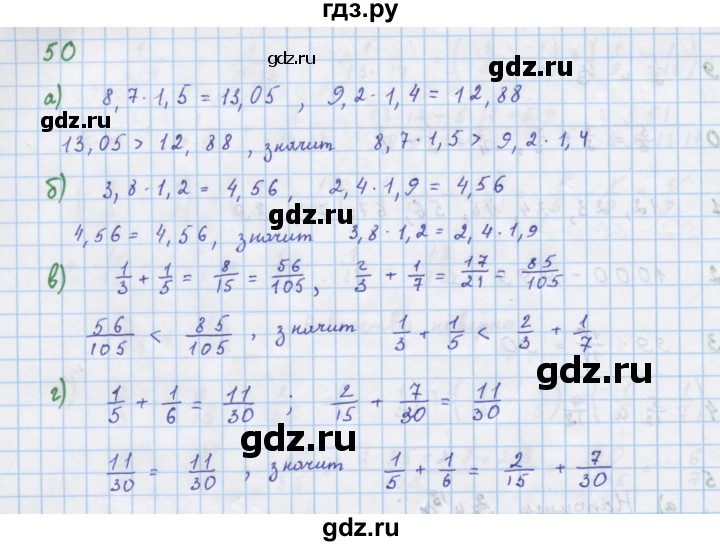 гдз.ру
50
gdz.ru
а) 8,7·1,5 = 13,05 , 9,2·1,4 = 12,88
gdz.ru
gdz.ru
13,05 > 12,88 , значит 8,7·1,5 > 9,2·1,4
б) 3,8·1,2 = 4,56, 2,4·1,9 = 4,56
gdz.ru
4,56 = 4,56, значит 3,8·1,2 = 2,4·1,9
в) 1/3 + 1/5 = 8/15 = 56/105, 2/3 + 1/7 = 17/21 = 85/105
gdz.ru
56/105 < 85/105 , значит 1/3 + 1/5 < 2/3 + 1/7
г) 1/5 + 1/6 = 11/30 ; 2/15 + 7/30 = 11/30
gdz.ru
gdz.ru
11/30 = 11/30 , значит 1/5 + 1/6 = 2/15 + 7/30
gdz.ru